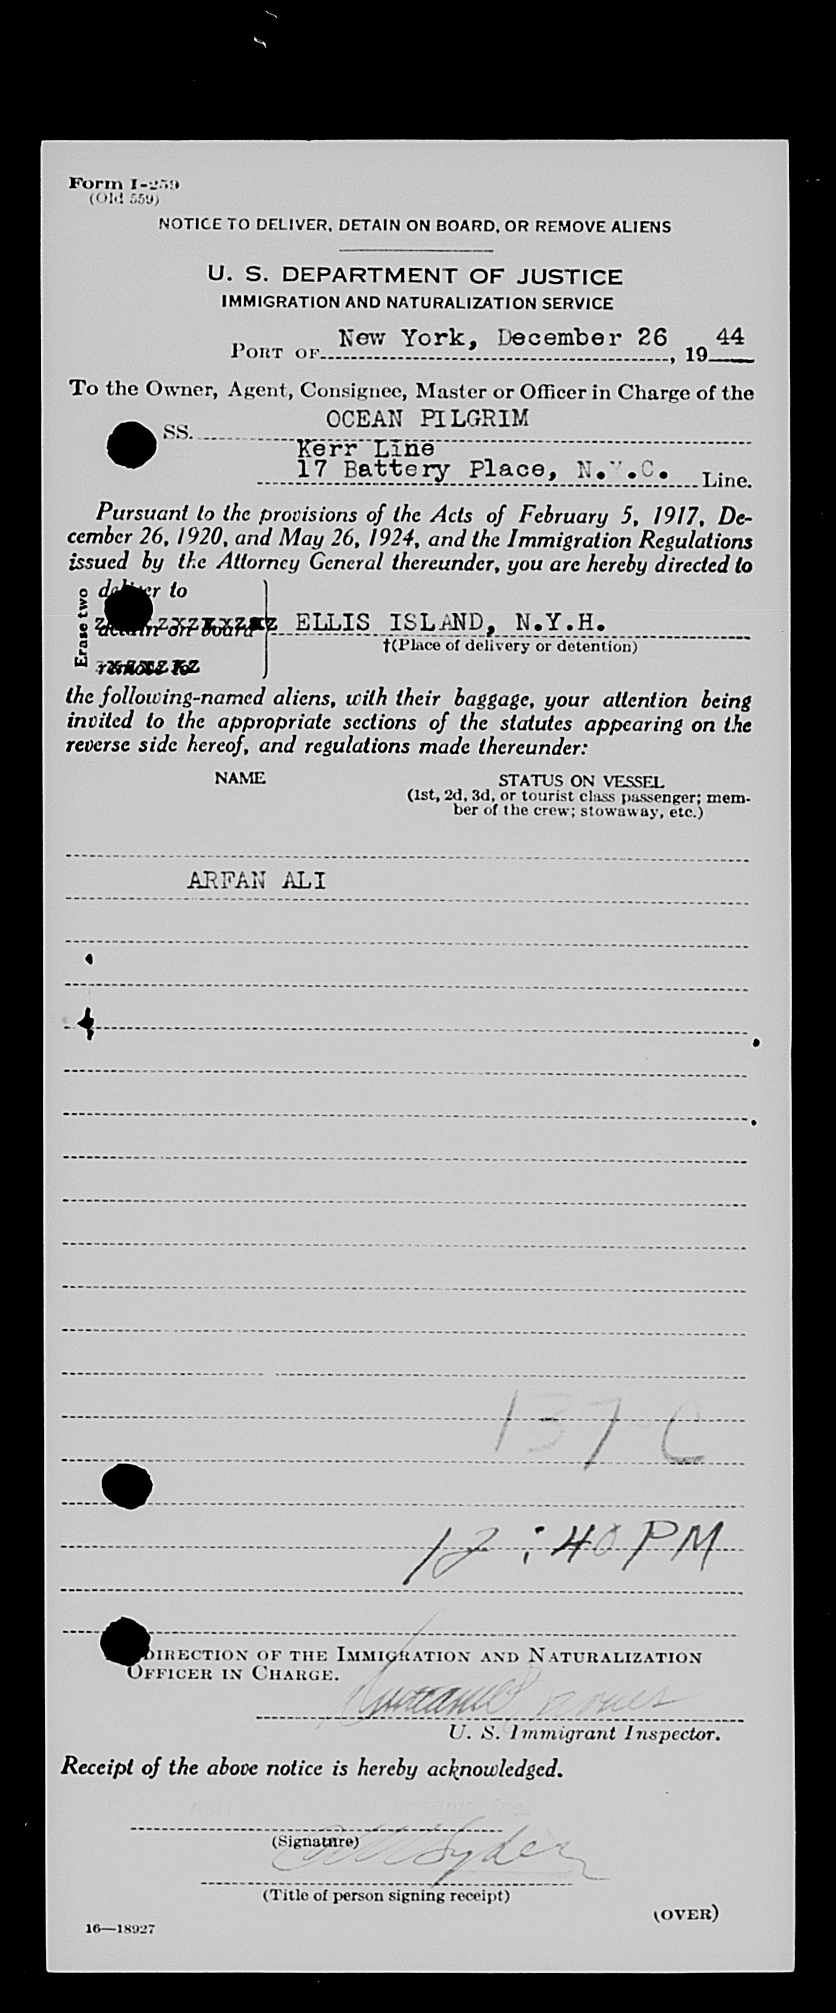 Form I-259
(Old 559)
NOTICE TO DELIVER, DETAIN ON BOARD, OR REMOVE ALIENS
U. S. DEPARTMENT OF JUSTICE
IMMIGRATION AND NATURALIZATION SERVICE
PORT OF New York, December 26, 1944
To the Owner, Agent, Consignee, Master or Officer in Charge of the
SS. OCEAN PILGRIM
Kerr Line
17 Battery Place, N.Y.C. Line.
Pursuant to the provisions of the Acts of February 5, 1917, De-
cember 26, 1920, and May 26, 1924, and the Immigration Regulations
issued by the Attorney General thereunder, you are hereby directed to
Erase two
deliver to
detain on board
ELLIS ISLAND, N.Y.H.
†(Place of delivery or detention)
remove to
the following-named aliens, with their baggage, your attention being
invited to the appropriate sections of the statutes appearing on the
reverse side hereof, and regulations made thereunder:
NAME STATUS ON VESSEL
(1st, 2d, 3d, or tourist class passenger; mem-
ber of the crew; stowaway, etc.)
ARFAN ALI
137-C
12:40 PM
DIRECTION OF THE IMMIGRATION AND NATURALIZATION
OFFICER IN CHARGE.
U. S. Immigrant Inspector.
Receipt of the above notice is hereby acknowledged.
(Signature)
Snyder
(Title of person signing receipt)
(OVER)
16—18927